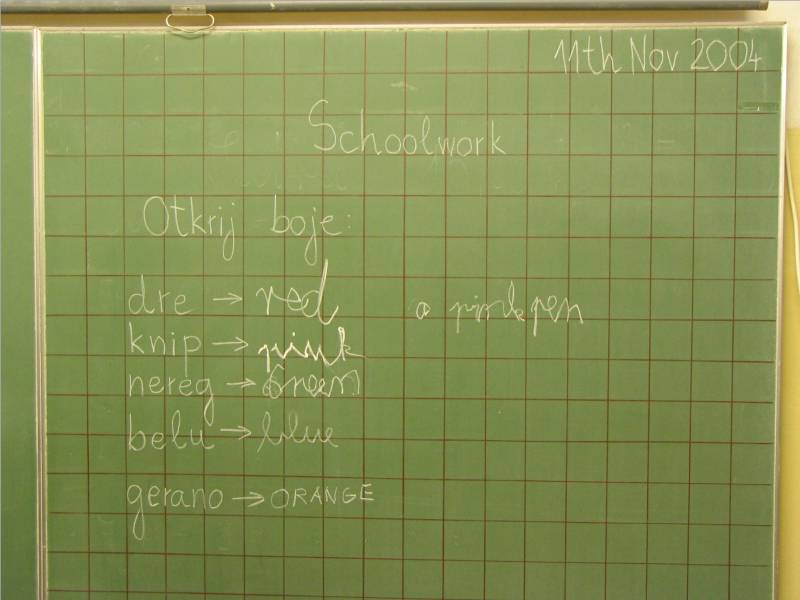 11th Nov 2004
Schoolwork
Otkrij boje:
dre → red a pink pen
knip → pink
nereg → Green
belu → blue
gerano → ORANGE